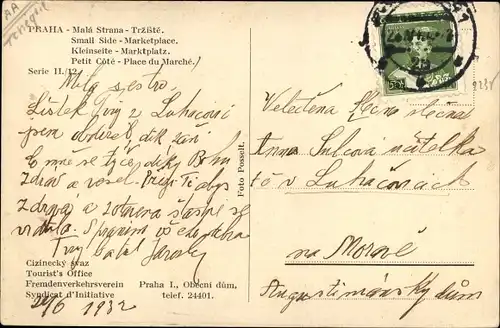 PRAHA - Malá Strana - Tržiště.
Small Side - Marketplace.
Kleinseite - Marktplatz.
Petit Côté - Place du Marché.
Serie II./12.
Milá sestro!
Lístek Tvůj z Luhačovic
jsem obdržel, dík zaň
Co mně se týče, díky Bohu
zdráv a vesel. Přeji Ti abys
zdravá a šťastně se
vrátila. S
Tvůj bratr Jaroslav
Cizinecký svaz
Tourist's Office
Fremdenverkehrsverein
Syndicat d'Initiative
Praha I., Obecní dům,
telef. 24401.
29/6 1932
Foto Posselt.
Velectěná slečna
Anna Šulcová učitelka
t.č. v Luhačovicích
na Moravě
Augustiniánský dům